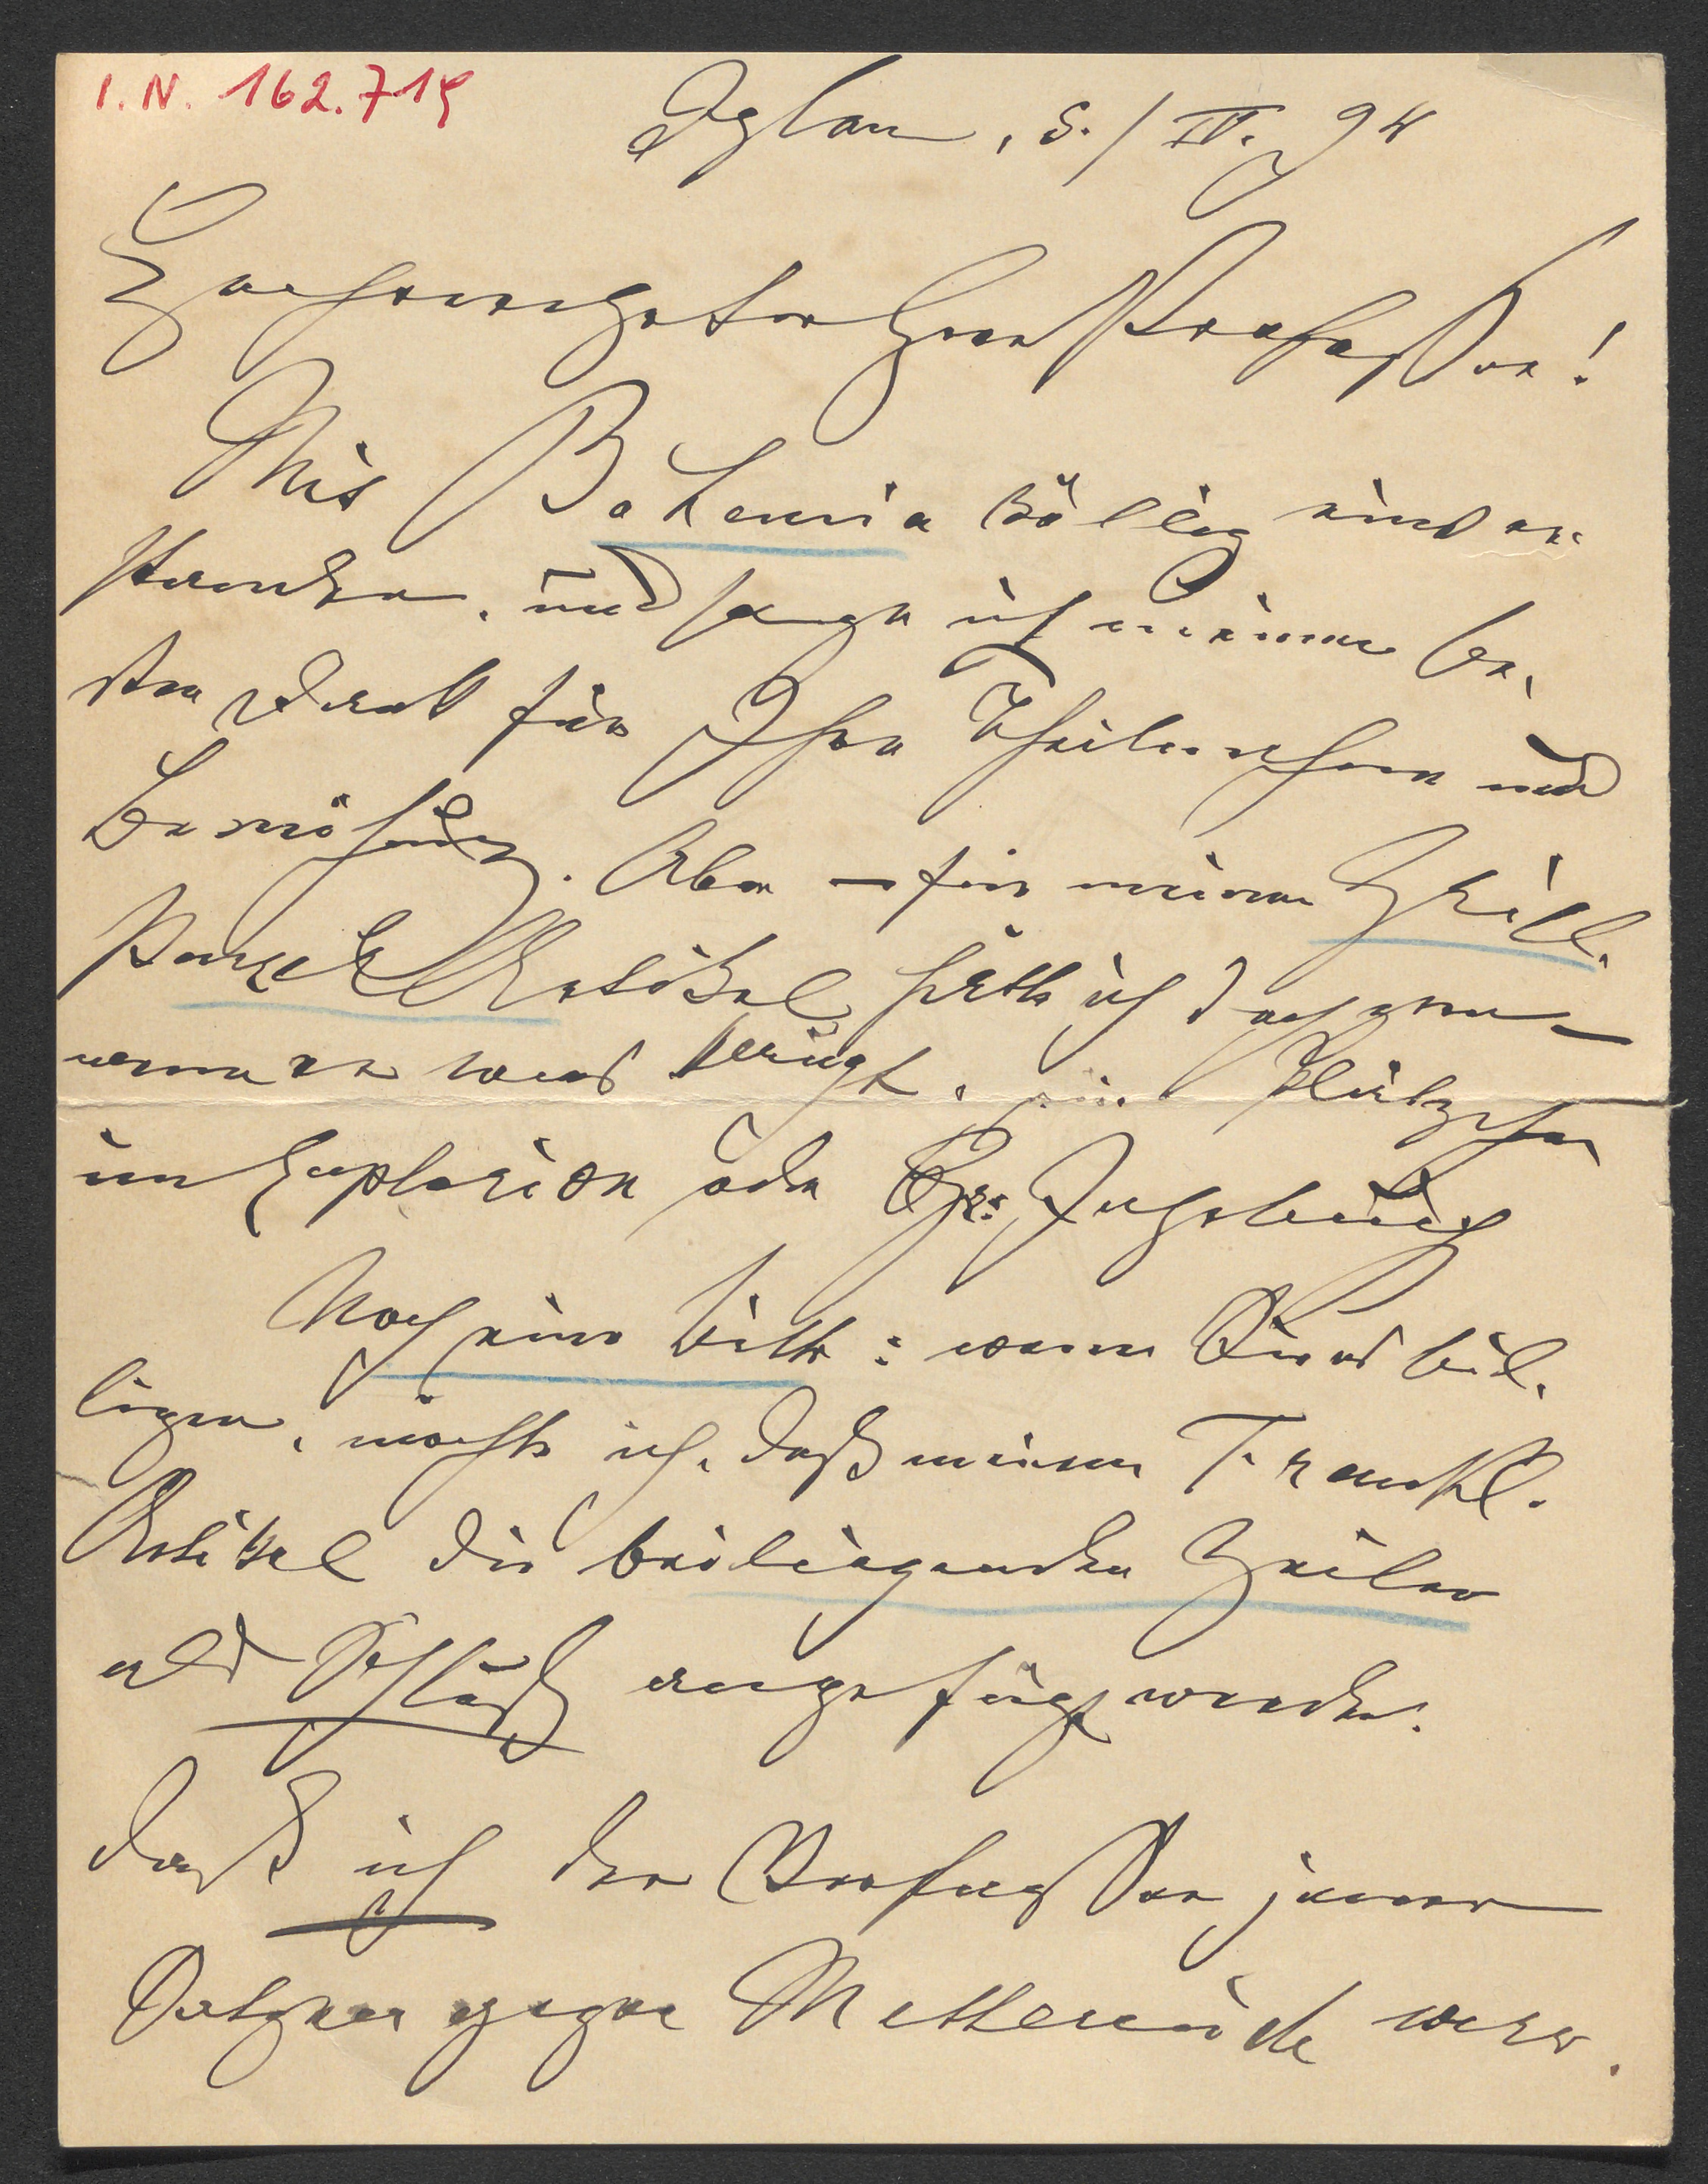 I. N. 162.719
Iglau, 5./IV. 94
Hochverehrter Herr Professor!
Mit Bohemia völlig einver-
standen, und sage ich meinen be-
sten Dank für Ihre Theilnahme und
Bemühung. Aber – für meinen Grill-
parzer Artikel hätte ich doch gern –
wenn er was taugt, ein Plätzchen
im Euphorion oder Gr: Jahrbuch
Noch eine Bitte: wenn Sie es bil-
ligen, möchte ich, daß meinem Frankl-
Artikel die beiliegenden Zeilen
als Schluß angefügt werden.
Daß ich der Verfasser jener
Satzer gegen Metternich war.